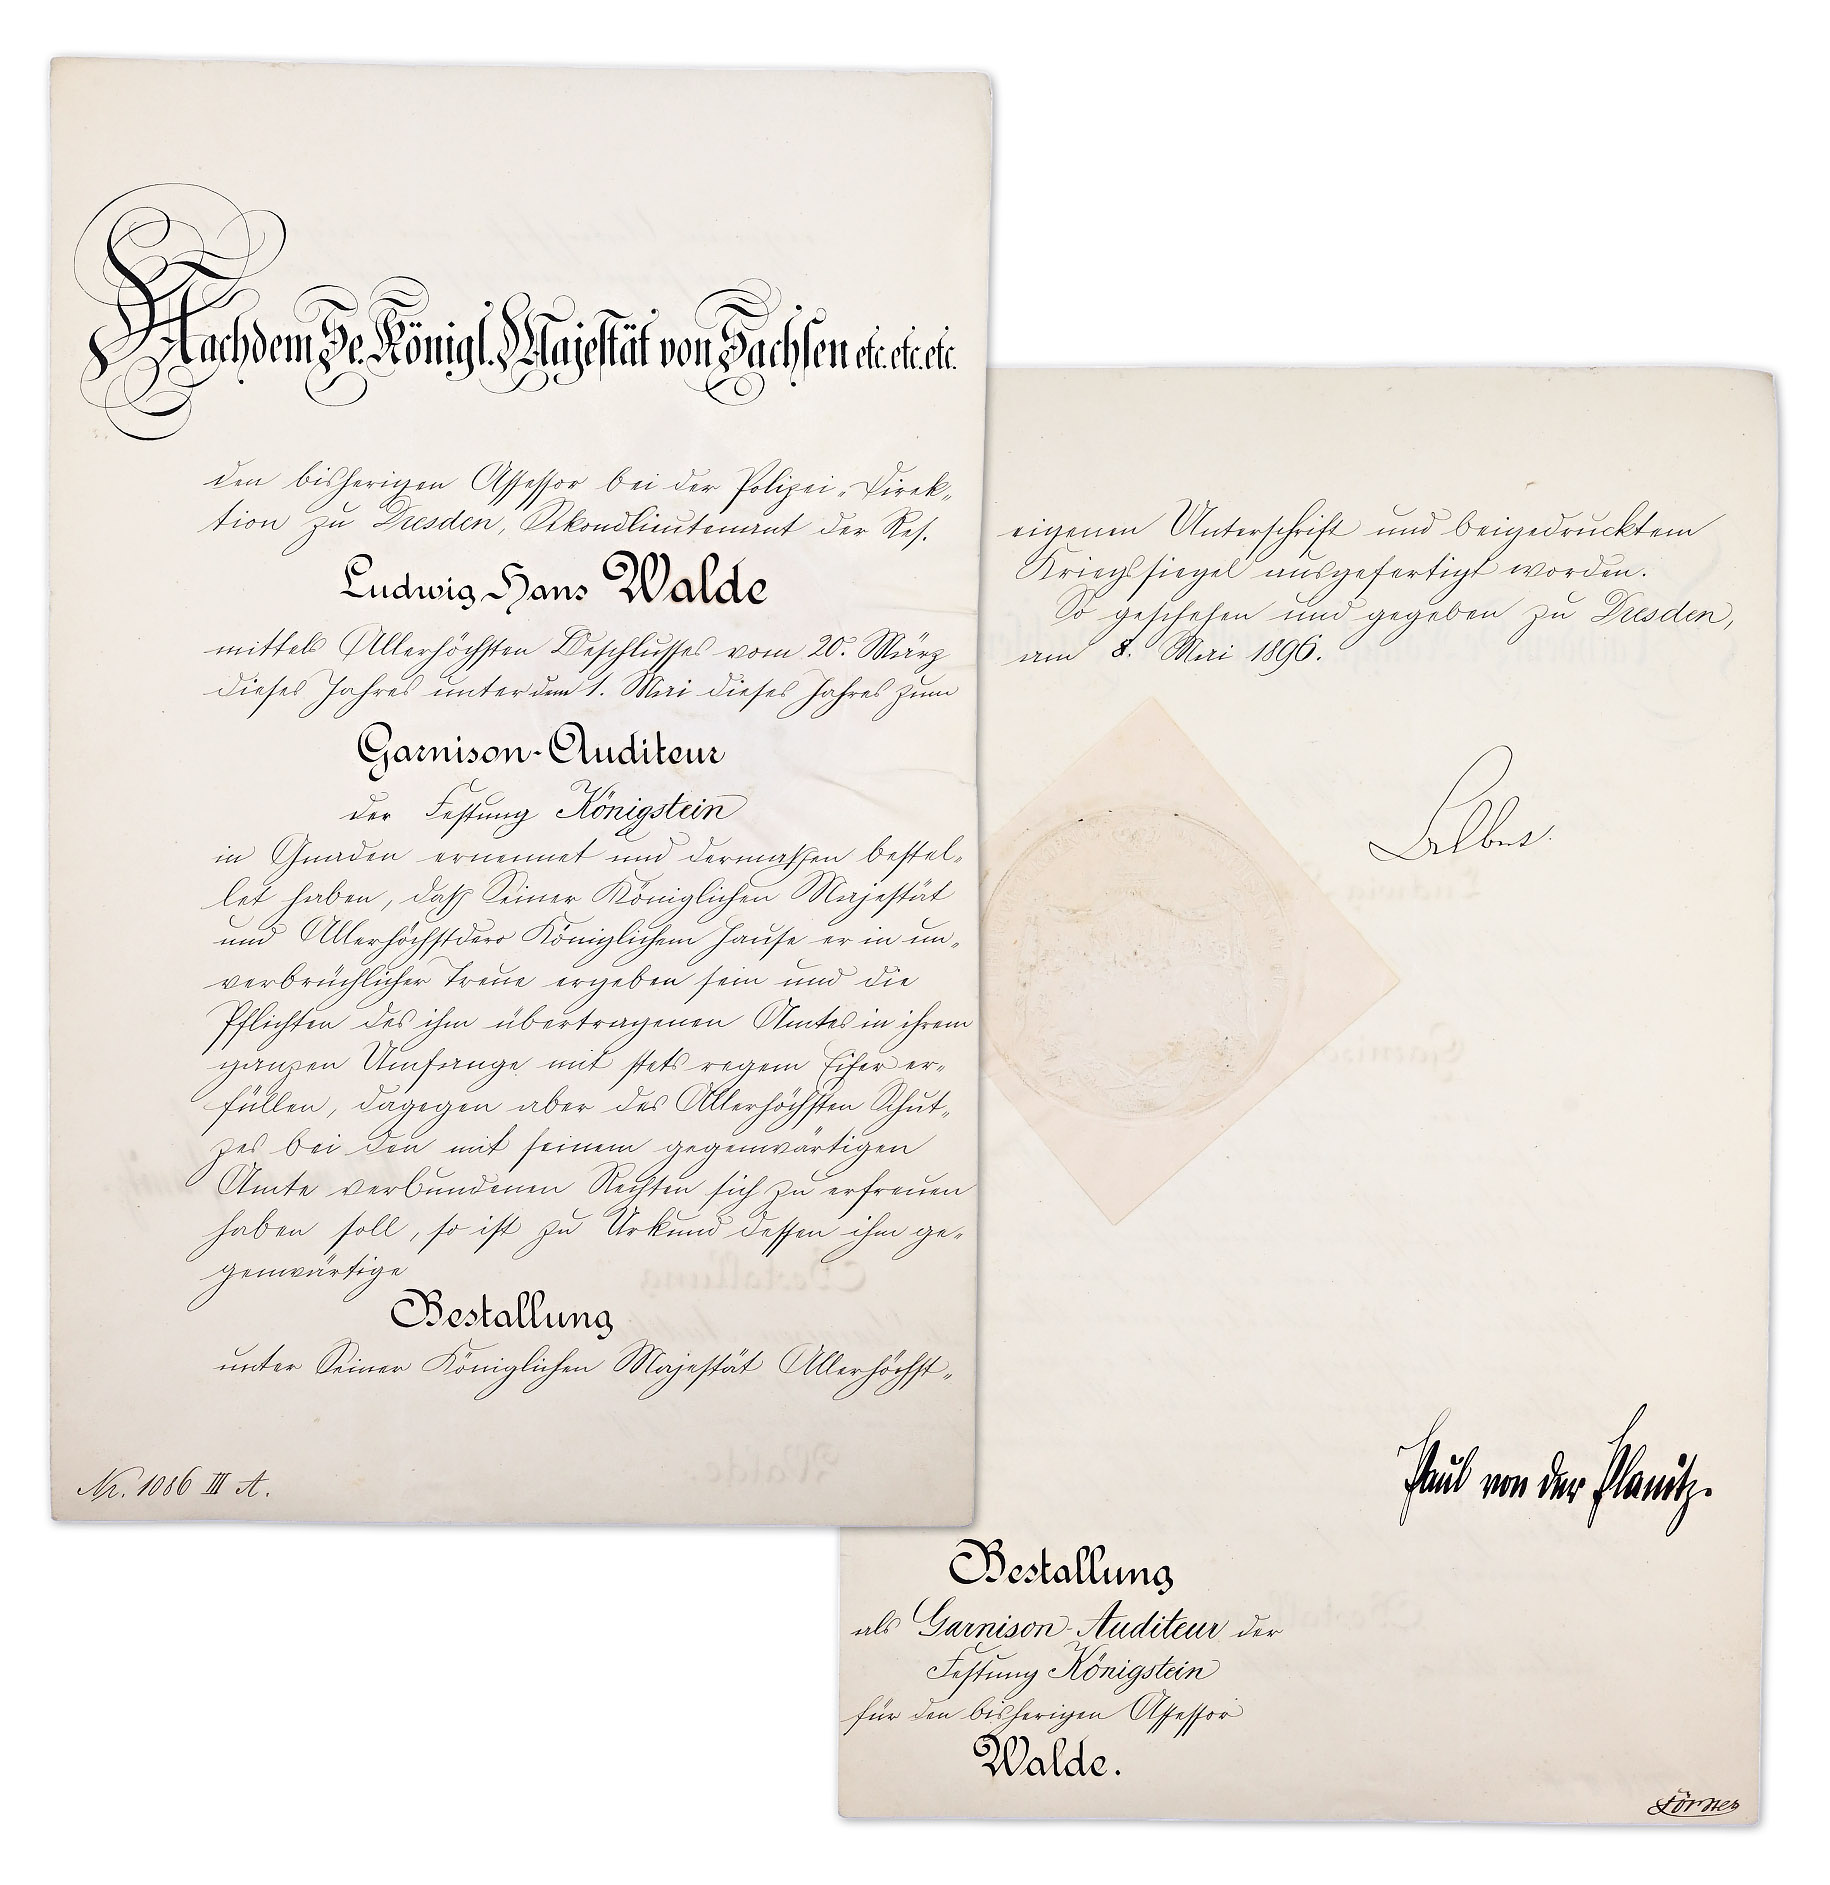 Nachdem Se. Königl. Majestät von Sachsen etc. etc. etc.
den bisherigen Assessor bei der Polizei-Direk-
tion zu Dresden, Sekondlieutenant der Res.
Ludwig Hans Walde
mittels Allerhöchsten Beschlusses vom 20. März
dieses Jahres unter dem 1. Mai dieses Jahres zum
Garnison-Auditeur
der Festung Königstein
in Gnaden ernennet und dermaßen bestel-
let haben, daß Seiner Königlichen Majestät
und Allerhöchstdero Königlichem Hause er in un-
verbrüchlicher Treue ergeben sein und die
Pflichten des ihm übertragenen Amtes in ihrem
ganzen Umfange mit stets regem Eifer er-
füllen, dagegen aber des Allerhöchsten Schut-
zes bei den mit seinem gegenwärtigen
Amte verbundenen Rechten sich zu erfreuen
haben soll, so ist zu Urkund dessen ihm ge-
genwärtige
Bestallung
unter Seiner Königlichen Majestät Allerhöchst-
Nr. 1086 III A.
eigenen Unterschrift und beigedrucktem
Kriegssiegel ausgefertigt worden.
So geschehen und gegeben zu Dresden,
am 8. Mai 1896.
Albert
Paul von der Planitz.
Bestallung
als Garnison-Auditeur der
Festung Königstein
für den bisherigen Assessor
Walde.